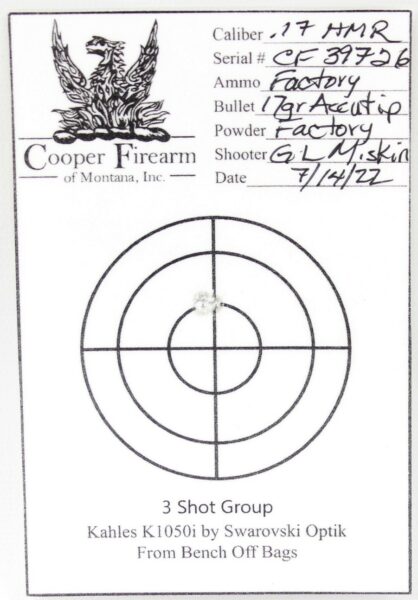 Caliber .17 HMR
Serial # CF 39726
Ammo Factory
Bullet 17gr Accutip
Powder Factory
Cooper Firearm
of Montana, Inc.
Shooter G L Miskin
Date 7/14/22
3 Shot Group
Kahles K1050i by Swarovski Optik
From Bench Off Bags